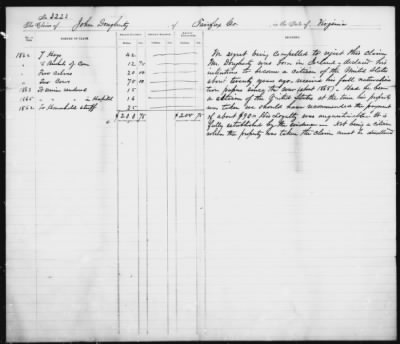 No 3221
The Claim of John Dougherty of Fairfax Co. in the State of Virginia
NATURE OF CLAIM
REMARKS
1862 7 Hogs 42
" 5 Barrels of Corn 12 70
" Two Calves 20 00
" Two Cows 70 00
1863 To service rendered 15
1865 " " " in Hospital 16
1862 To Household stuff 25
$200 75 $200 75
We regret being compelled to reject this claim
Mr. Dougherty was born in Ireland, declared his
intentions to become a citizen of the United States
about twenty years ago, received his full naturaliza
tion papers since the war (Sept 1865). Had he been
a citizen of the United States at the time his property
was taken we should have recommended the payment
of about $90. His loyalty was unquestionable. It is
fully established by the evidence. Not being a citizen
when the property was taken the claim must be disallowed